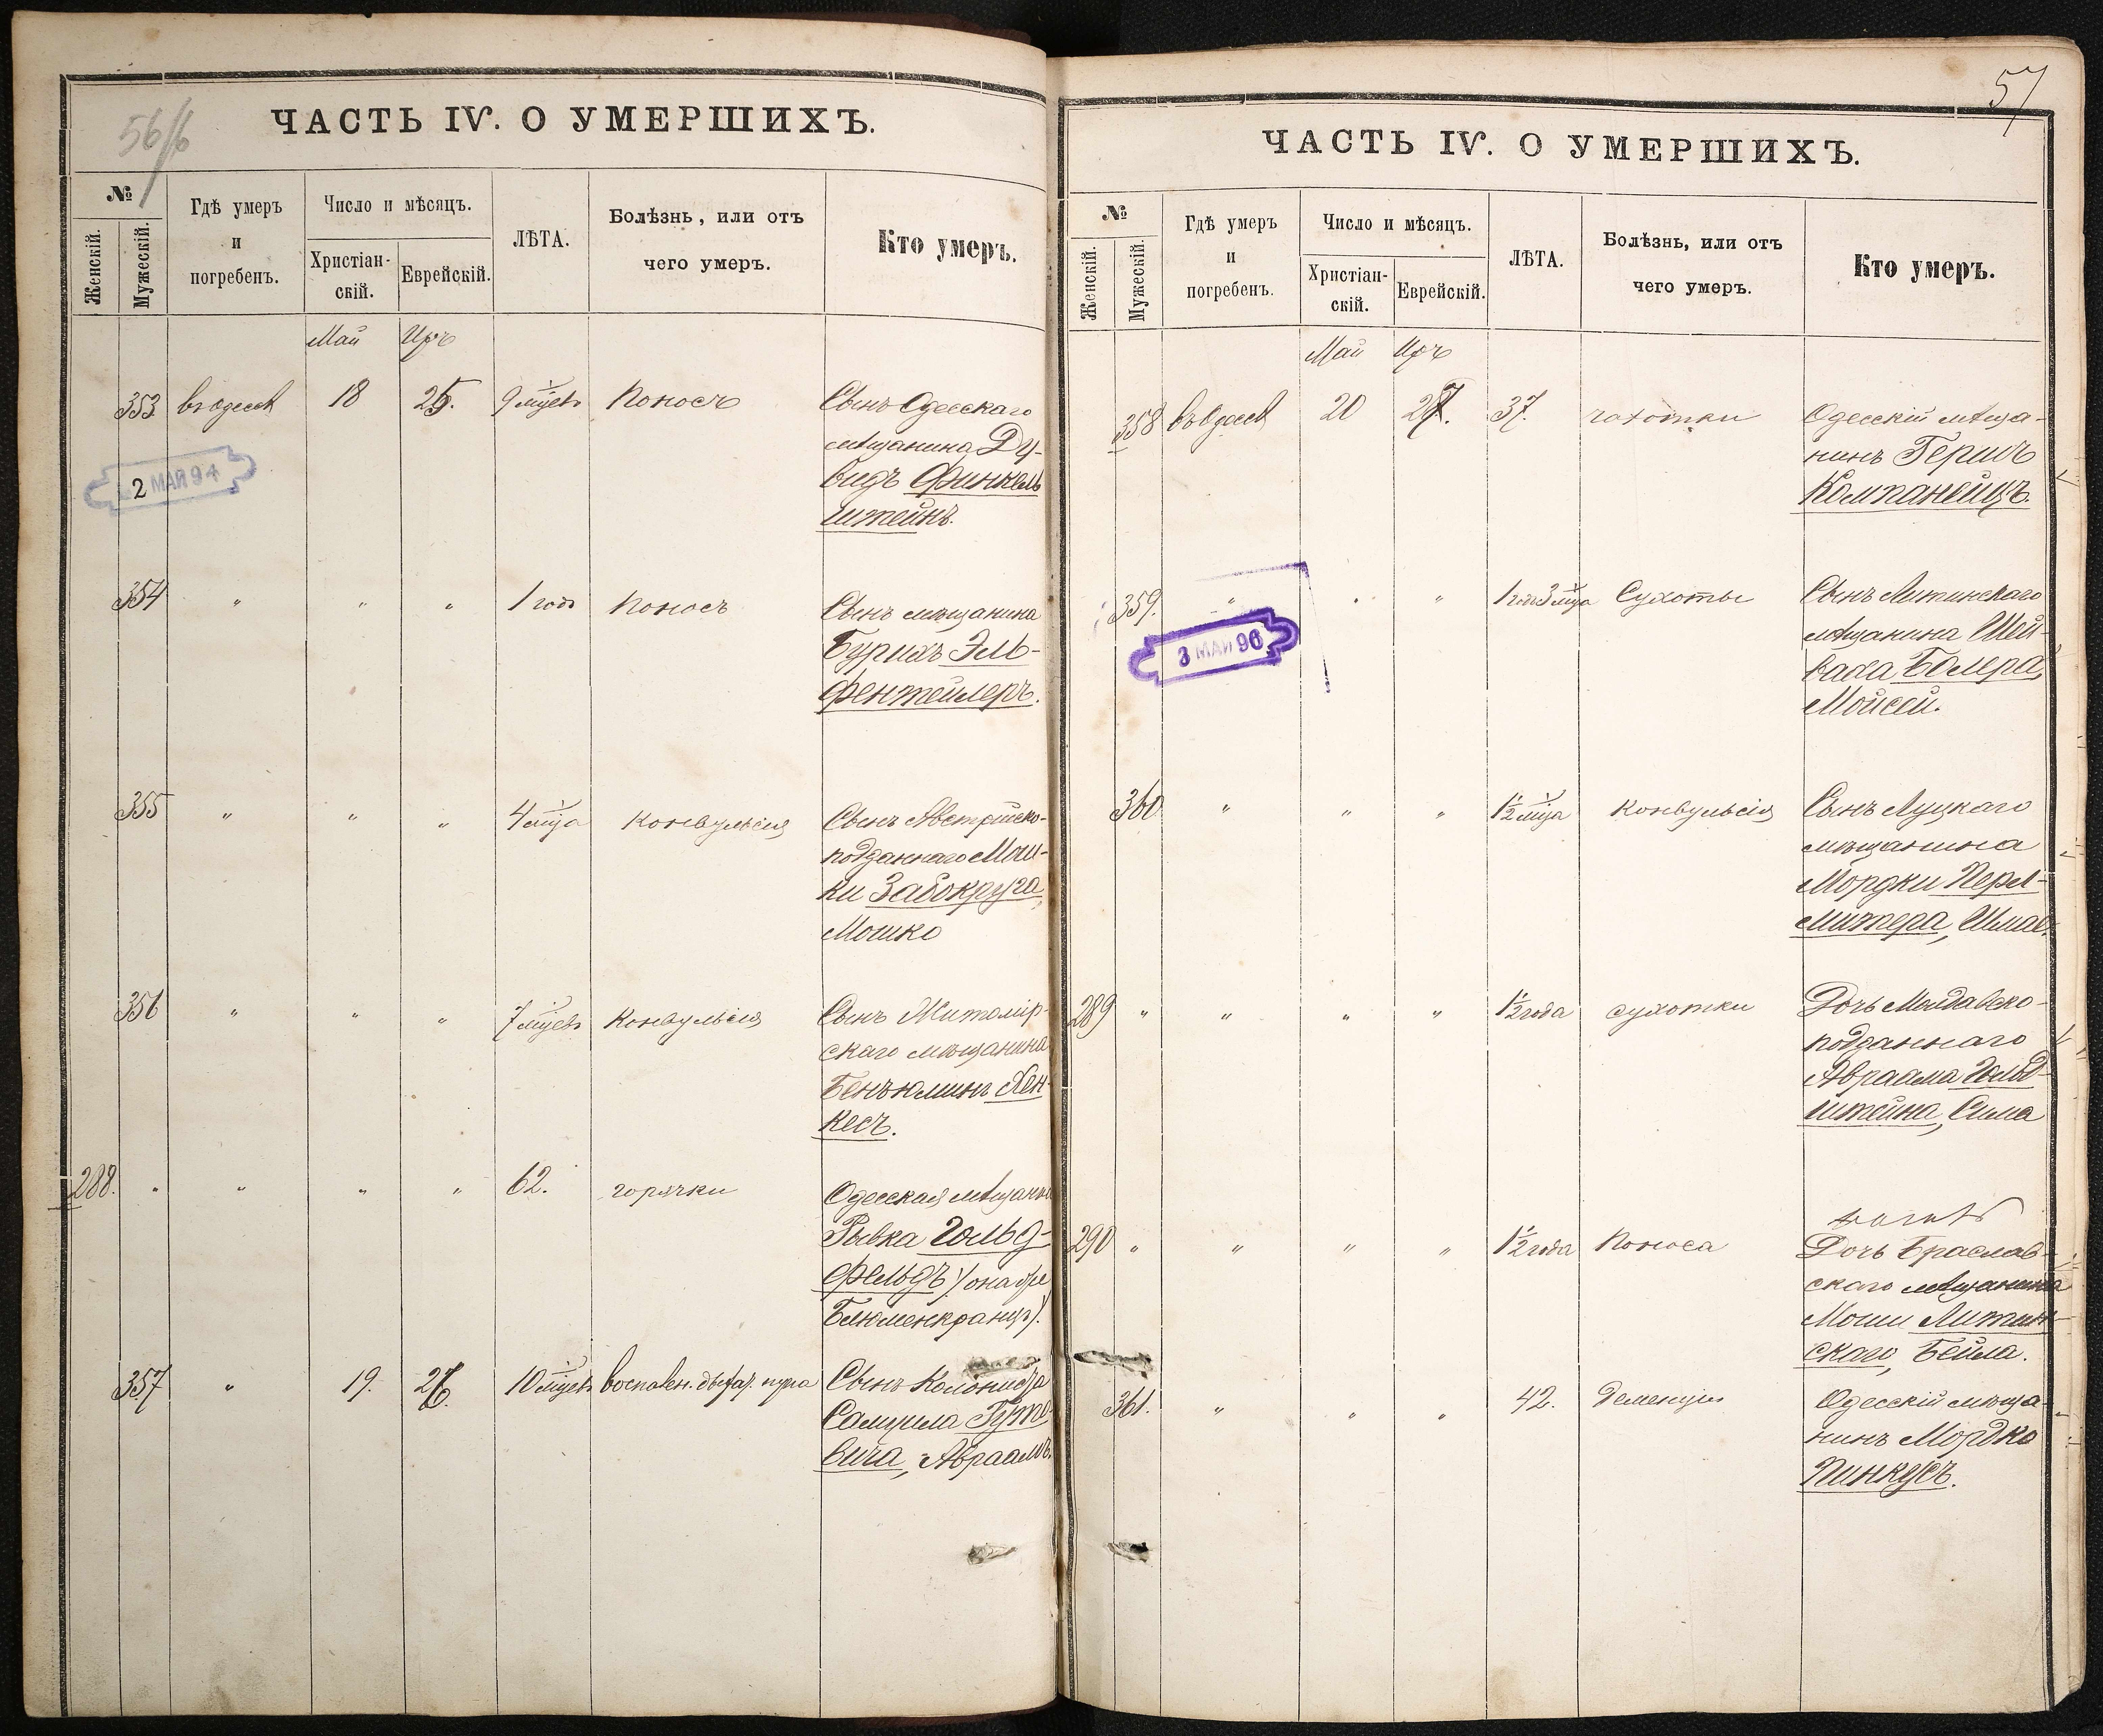 56/6
ЧАСТЬ IV. О УМЕРШИХЪ.
№
Женскій.
Мужескій.
Гдѣ умеръ
и
погребенъ.
Число и мѣсяцъ.
Христіан-
скій.
Еврейскій.
ЛѢТА.
Болѣзнь, или отъ
чего умеръ.
Кто умеръ.
Май Иръ
353 въ Одессѣ 18 25. 9 мѣсцевъ Поносъ Сынъ Одесскаго
мѣщанина Ду-
видъ Финкель
штейнъ.
2 МАЯ 94
354 " " " 1 годъ Поносъ Сынъ мѣщанина
Бурихъ Эль-
фентейлеръ.
355 " " " 4 мѣсца Конвульсія Сынъ Австрійско-
подданнаго Мош-
ки Забокруга,
Мошко
356 " " " 7 мѣсцевъ Конвульсія Сынъ Житомір-
скаго мѣщанина
Беньюминъ Хен-
кесъ.
288. " " " " 62. горячки Одесская мѣщанка
Рывка Гольд-
фельдъ (она же
Блюменкранцъ).
357 " 19. 26. 10 мѣсцевъ воспален. дыхат. Сынъ Колониста
Самуила Гуто-
вича, Авраамъ.
57
ЧАСТЬ IV. О УМЕРШИХЪ.
№
Женскій.
Мужескій.
Гдѣ умеръ
и
погребенъ.
Число и мѣсяцъ.
Христіан-
скій.
Еврейскій.
ЛѢТА.
Болѣзнь, или отъ
чего умеръ.
Кто умеръ.
Май Иръ
358 въ Одессѣ 20 27. 37. чахотки Одесскій мѣща-
нинъ Гершъ
Компанеецъ.
359. " " " 1 годъ 3 мѣсца Сухоты Сынъ Литинскаго
мѣщанина Шей-
ваха Бомера,
Мойсей.
3 МАЙ 96
360 " " " 1½ мѣсца Конвульсія Сынъ Луцкаго
мѣщанина
Мордки Перл-
митера,
289 " " " " 1½ года сухотки Дочь Молдавско-
подданнаго
Авраама Гольд-
штейна, Сима
290 " " " " 1½ года Поноса Дочь Браслав-
скаго мѣщанина
Мошки Литин-
скаго, Бейла.
361. " " " 42. Деменція Одесскій мѣща-
нинъ Мордко
Пинкусъ.